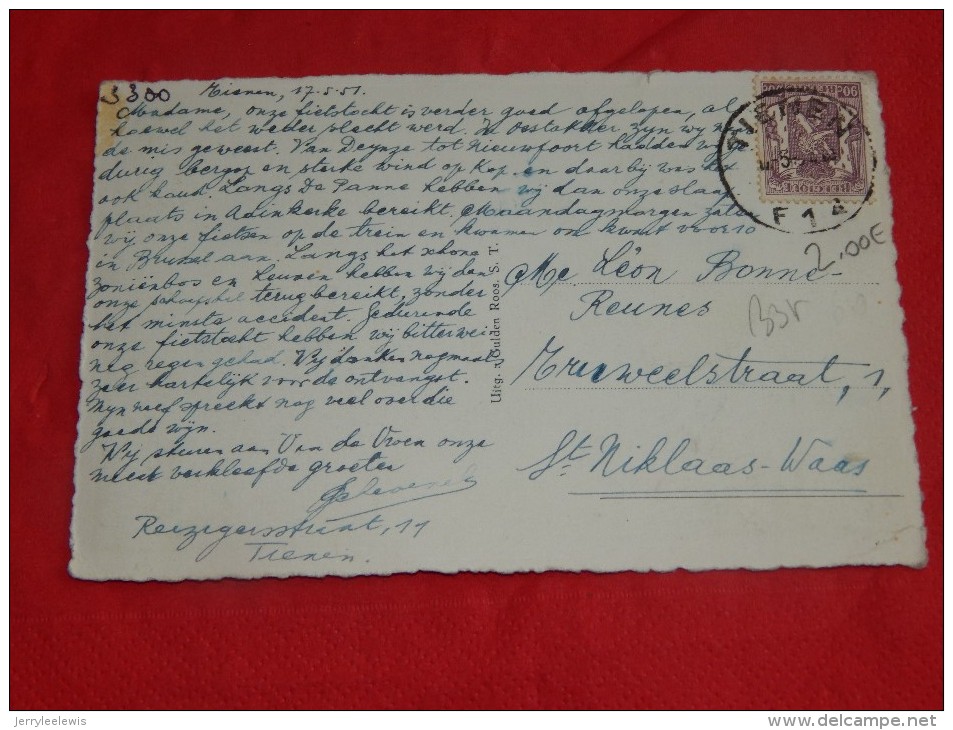 3300
Tienen, 17-5-51.
Madame, onze fietstocht is verder goed afgelopen, al
hoewel het weder slecht werd. In Oostakker zyn wy
de mis geweest. Van Deynze tot Nieuwpoort hadden wy
durig bergop en sterke wind op kop, en daarby was het
ook koud. Langs De Panne hebben wij dan onze slaap
plaats in Adinkerke bereikt. Maandagmorgen
wij onze fietsen op de trein en kwamen om kwart voor 10
in Brussel aan. Langs het schone
zoniënbos en Leuven hebben wij dan
onze terug bereikt, zonder
het minste accident. Gedurende
onze fietstocht hebben wij bitter wei
nig regen gehad. Wij danken nogmaals
zeer hartelijk voor de ontvangst.
Mijn neef spreekt nog veel over die
goede wijn.
Wij sturen aan onze
meest verkleefde groeten
Reizigersstraat, 11
Tienen.
Uitg. Gulden Roos. S. T.
Me Léon Bonne-
Reunes
straat, 1,
St Niklaas-Waas
TIENEN
F 1 4
90
BELGIQUE
2.00E
BSV
jerryleelewis
www.delcampe.net